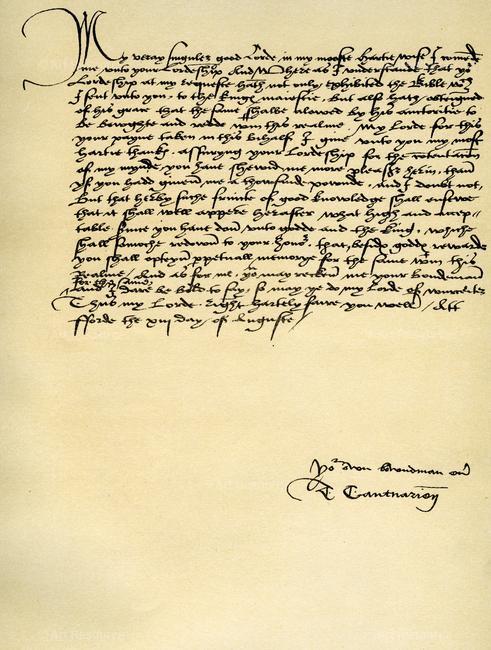 My veray singuler good Lorde, in my mooste hartie wise I commend
me unto your Lordeship. And Where as I understande that yor
Lordeship at my requeste hath not only exhibited the Bible wch
I sent unto you, to the kings maiestie, but also hath obteigned
of his grace that the same shalbe alowed by his auctoritie to
be boughte and redde wtin this realme, My Lorde for this
your payne taken in this behalf, I give unto you my most
hartie thanks, assuryng your Lordeship for the contentacion
of my mynde, you have shewed me more pleasr herin, than
yf you hadd given me a thowsande pownde, and I doubt not,
But that herby suche fruicte of good knowledge shall ensewe
that it shall well appere herafter what high and accep=
table service you have don unto godde and the King, whiche
shall somoche redown to your honor, that, besids godds rewarde
you shall opteyn perpetuall memorye for the same wtin this
Realme. And as for me, yo may reckon me your bondeman
for the same
And I dare be bold to say, so may ye do my Lorde of wurceter
Thus my Lorde, right hartely fare you well. Att
fforde the xiij day of Auguste
Yor own bowndman ever
T Cantuarien